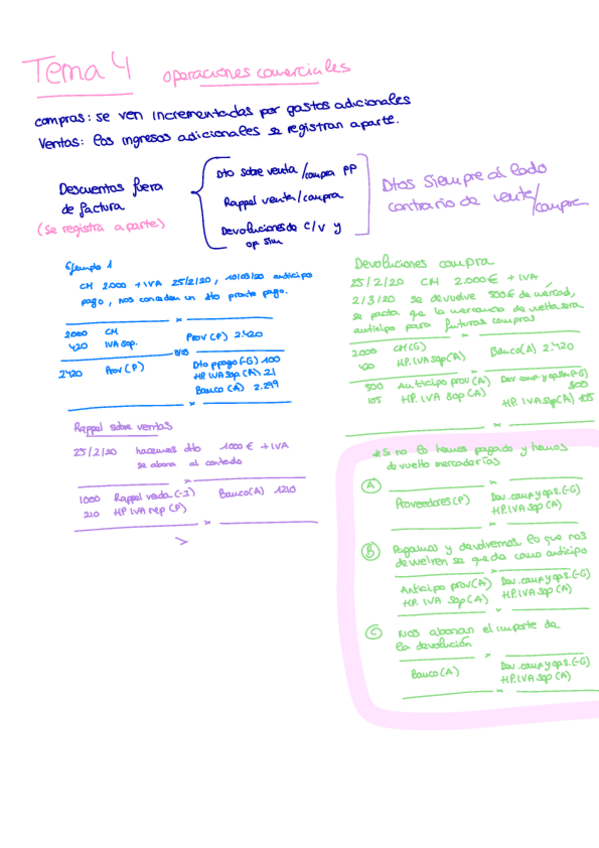 Tema 4 operaciones comerciales
compras: se ven incrementadas por gastos adicionales
Ventas: los ingresos adicionales se registran aparte.
Descuentos fuera
de factura
(se registra aparte)
Dto sobre venta/compra PP
Rappel venta/compra
Devoluciones de C/V y
op sim
Dtos siempre al lado
contrario de venta/
compra
Ejemplo 1
CM 2.000 + IVA 25/2/20, 10/03/20 anticipo
pago, nos conceden un dto pronto pago.
2000 CM
420 IVA sop. Prov (P) 2.420
2420 Prov (P) Dto ppago (-G) 100
HP IVA sop (A) 21
Banco (A) 2.299
Rappel sobre ventas
25/2/20 hacemos dto 1000 € + IVA
se abona al contado
1000 Rappel venta (-I) Banco (A) 1210
210 HP IVA rep (P)
>
Devoluciones compra
25/2/20 CM 2.000 € + IVA
2/3/20 se devuelve 500€ de mercad,
se pacta que la mercancía devuelta sea
anticipo para futuras compras
2000 CM (G) Banco (A) 2.420
420 HP. IVA sop (A)
500 Anticipo prov (A) Dev comp y op sim (-G)
500
105 HP. IVA sop (A) HP. IVA sop (A) 105
* Si no lo hemos pagado y hemos
devuelto mercaderías
A
Proveedores (P) Dev. comp y op s. (-G)
HP. IVA sop (A)
B Pagamos y devolvemos lo que nos
devuelven se queda como anticipo
Anticipo prov (A) Dev. comp y op s. (-G)
HP. IVA sop (A) HP. IVA sop (A)
C Nos abonan el importe de
la devolución
Banco (A) Dev. comp y op s. (-G)
HP. IVA sop (A)